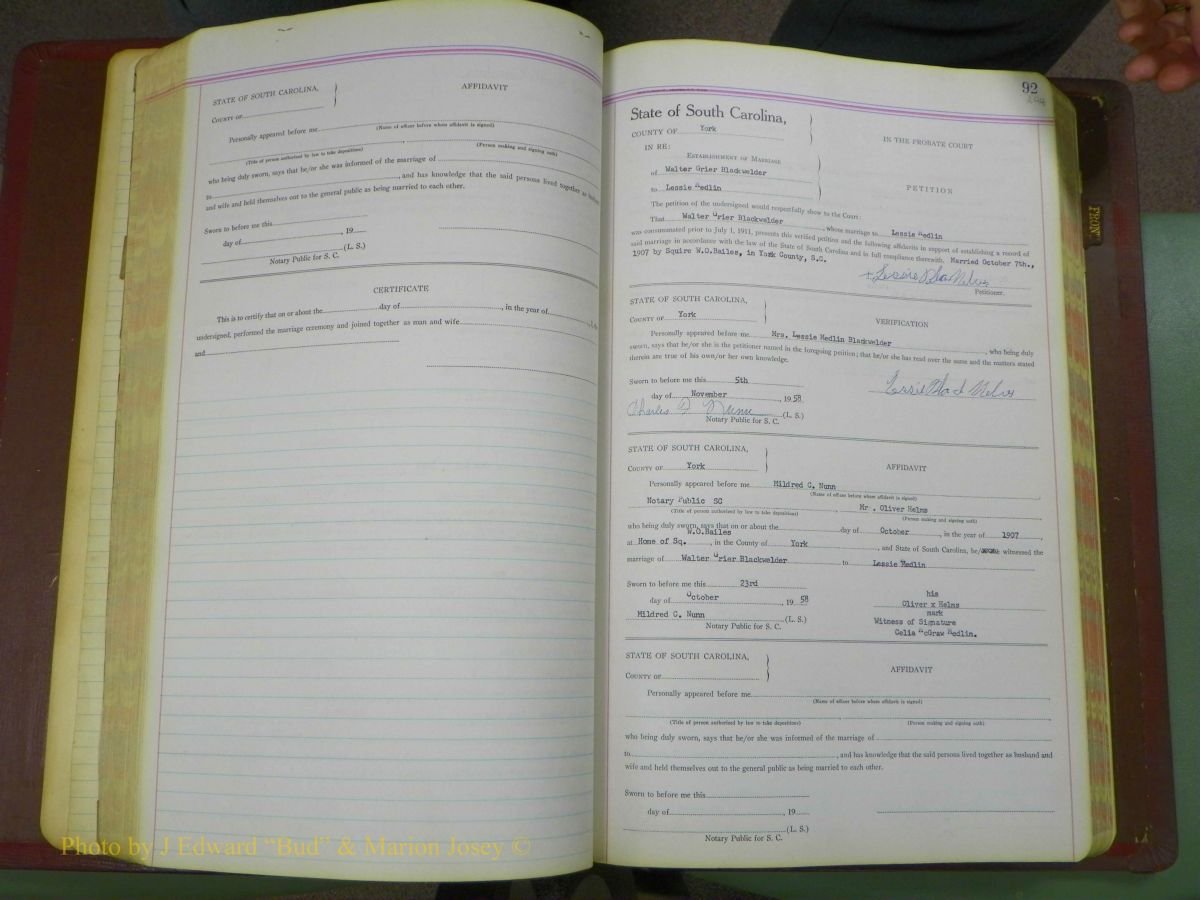 STATE OF SOUTH CAROLINA,
AFFIDAVIT
COUNTY OF
Personally appeared before me
(Name of officer before whom affidavit is signed)
(Title of person authorized by law to take depositions)
(Person making and signing oath)
who being duly sworn, says that he/or she was informed of the marriage of
to, and has knowledge that the said persons lived together as husband
and wife and held themselves out to the general public as being married to each other.
Sworn to before me this
day of, 19
(L. S.)
Notary Public for S. C.
CERTIFICATE
This is to certify that on or about the day of, in the year of
undersigned, performed the marriage ceremony and joined together as man and wife
and
92
State of South Carolina,
COUNTY OF York
IN THE PROBATE COURT
IN RE:
ESTABLISHMENT OF MARRIAGE
of Walter Grier Blackwelder
PETITION
to Lessie Medlin
The petition of the undersigned would respectfully show to the Court:
That Walter Grier Blackwelder, whose marriage to Lessie Medlin
was consummated prior to July 1, 1911, presents this verified petition and the following affidavits in support of establishing a record of
said marriage in accordance with the law of the State of South Carolina and in full compliance therewith. Married October 7th.,
1907 by Squire W.O.Bailes, in York County, S.C.
Petitioner.
STATE OF SOUTH CAROLINA,
COUNTY OF York
VERIFICATION
Personally appeared before me Mrs. Lessie Medlin Blackwelder, who being duly
sworn, says that he/or she is the petitioner named in the foregoing petition; that he/or she has read over the same and the matters stated
therein are true of his own/or her own knowledge.
Sworn to before me this 5th
day of November, 1958
Charles D Nunn (L. S.)
Notary Public for S. C.
STATE OF SOUTH CAROLINA,
COUNTY OF York
AFFIDAVIT
Personally appeared before me Mildred C. Nunn
(Name of officer before whom affidavit is signed)
Notary Public SC, Mr . Oliver Helms
(Title of person authorized by law to take depositions)
(Person making and signing oath)
who being duly sworn, says that on or about the day of October, in the year of 1907,
W.O.Bailes
at Home of Sq., in the County of York, and State of South Carolina, he/ witnessed the
marriage of Walter Grier Blackwelder to Lessie Medlin
Sworn to before me this 23rd
day of October, 19 58
Mildred C. Nunn (L. S.)
Notary Public for S. C.
his
Oliver x Helms
mark
Witness of Signature
Celia McGraw Medlin.
STATE OF SOUTH CAROLINA,
COUNTY OF
AFFIDAVIT
Personally appeared before me
(Name of officer before whom affidavit is signed)
(Title of person authorized by law to take depositions)
(Person making and signing oath)
who being duly sworn, says that he/or she was informed of the marriage of
to, and has knowledge that the said persons lived together as husband and
wife and held themselves out to the general public as being married to each other.
Sworn to before me this
day of, 19
(L. S.)
Notary Public for S. C.
Photo by J Edward "Bud" & Marion Josey ©